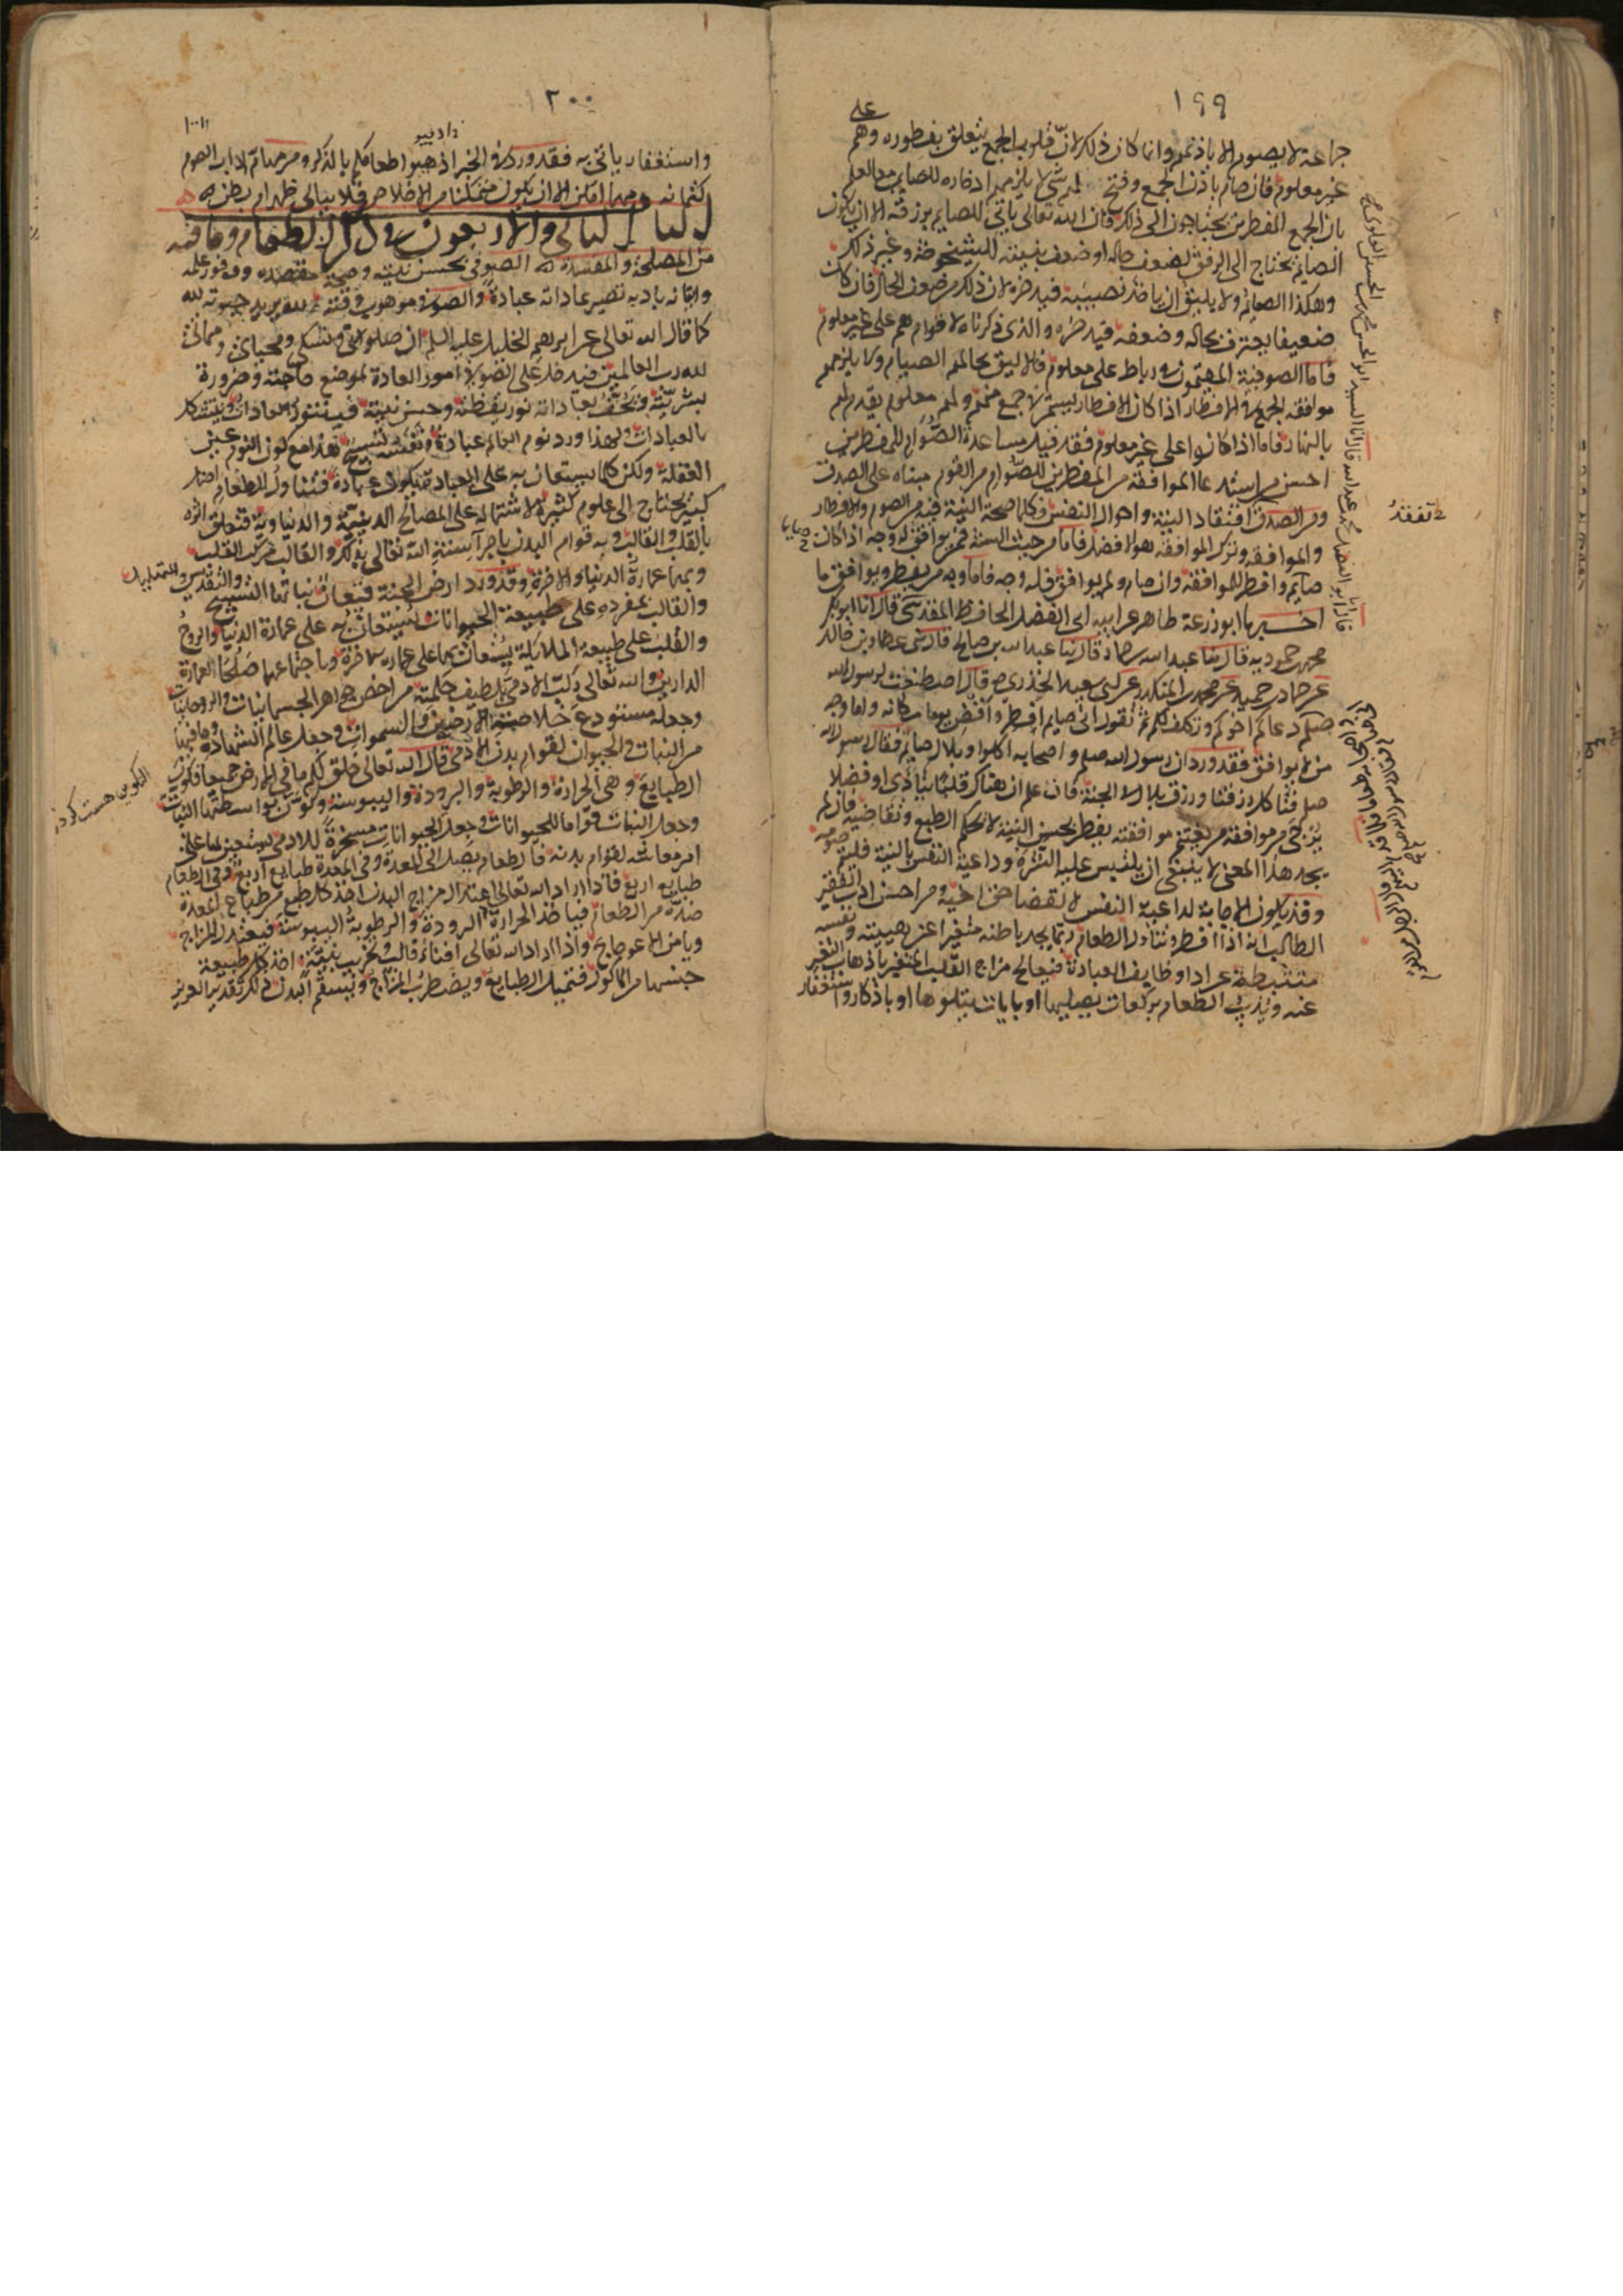 ١٩٩
على
جماعة لا يصومون الا باذنهم وانما كان ذلك لان قلوب الجمع يتعلق بفطوره وهم
غير معلوم فان صام باذن الجمع وفتح لهم شئ لا يلزمهم ادخاره للصايم مع العلم
بان الجمع المفطرين يحتاجون الى ذلك فان الله تعالى ياتى للصايم برزقه الا ان يكون
الصايم يحتاج الى الرفق لضعف حاله او ضعف بنيته لشيخوخة وغير ذلك
وهكذا الصايم ولا يليق ان ياخذ نصيبه فيدخره لان ذلك من ضعف الحال فان كان
ضعيفا يعترف بحاله وضعفه فيدخره والذى ذكرناه لاقوام هم على غير معلوم
فاما الصوفية المقيمون فى رباط على معلوم فالاليق بحالهم الصيام ولا يلزمهم
موافقة الجمع فى الافطار اذا كان الافطار يسير لجمع منهم ولهم معلوم يقدم لهم
بالنهار فاما اذا كانوا على غير معلوم فقد قيل مساعدة الصوام للمفطرين
احسن من استدعا الموافقة من المفطرين للصوام وامر القوم مبناه على الصدق
ومن الصدق افتقاد النية واحوال النفس فكلما صحة النية فيه من الصوم والافطار
والموافقة وترك الموافقة هو الافضل فاما من حيث السنة فمن يوافق له وجه اذا كان
صايم وافطر للموافقة وان صام ولم يوافق فله وجه فاما وجه من يفطر ويوافق ما
اخبرنا ابو زرعة طاهر عن ابيه ابى الفضل الحافظ المقدسى قال انا ابو بكر
محمد بن حمدويه قال ثنا عبد الله بن حماد قال ثنا عبد الله بن صالح قال حدثنى عطاء بن خالد
عن حماد بن حميد عن محمد بن المنكدر عن ابى سعيد الخدرى قال اصطنعت لرسول الله
صلعم دعاكم اخوكم وتكلف لكم ثم تقول انى صايم افطر واقض يوما مكانه واما وجه
من لا يوافق فقد ورد ان رسول الله صلعم واصحابه اكلوا وبلال صايم فقال رسول الله
صلعم ناكل رزقنا ورزق بلال فى الجنة فان علم ان هناك قلبا يتاذى او فضلا
يرجى من موافقة من يغتنم موافقته يفطر بحسن النية لا بحكم الطبع وتقاضيه فان لم
يجد هذا المعنى لا ينبغى ان يلتبس عليه الشره وداعية النفس بالنية فليتم صومه
وقد تكون الاجابة لداعية النفس لا لقضا حق اخيه ومن احسن ادب الفقير
الطالب انه اذا افطر وتناول الطعام ربما يجد باطنه متغيرا عن هيئته ونفسه
متثبطة عن ادا وظايف العبادة فيعالج مزاج القلب المتغير باذهاب التغير
عنه ويذيب الطعام بركعات يصليها او بايات يتلوها او باذكار واستغفار
تفقد
٢٠٠
واستغفار ياتى به فقد ورد فى الخبر اذيبوا طعامكم بالذكر ومن مهام اداب الصوم
كتمانه مهما امكن الا ان يكون متمكنا من الاخلاص فلا يبالى ظهر ام بطن
الباب الثالث والاربعون فى ذكر الطعام وما فيه
من المصلحة والمفسدة الصوفى بحسن نيته وصحة مقصده ووفور علمه
واتيانه بادبه تصير عاداته عبادة والصوفى موهوب وقته لله يريد حيوته لله
كما قال الله تعالى عن ابرهيم الخليل عليه السلم ان صلوتى ونسكى ومحياى ومماتى
لله رب العالمين فيدخل على الصوفى امور العادة لموضع حاجته وضرورة
بشريته ويحف بعاداته نور يقظته وحسن نيته فيتنور العادات ويتشكل
بالعبادات ولهذا ورد نوم العالم عبادة ونفسه تسبيح هذا مع كون النوم عين
الغفلة ولكن كلما يستعان به على العبادة يكون عبادة فتناول الطعام اصل
كبير يحتاج الى علوم كثيرة لاشتماله على المصالح الدينية والدنياوية وتعلق اثره
بالقلب والقالب وبه قوام البدن باجرا سنة الله تعالى بذلك والقالب مركب القلب
وبهما عمارة الدنيا والاخرة وقد ورد ارض الجنة قيعان نباتها التسبيح والتقديس
والقالب بمفرده على طبيعة الحيوانات يستعان به على عمارة الدنيا والروح
والقلب على طبيعة الملايكة يستعان بهما على عمارة الاخرة وباجتماعهما صلحا لعمارة
الدارين والله تعالى ركب الادمى بلطيف حكمته من اخص جواهر الجسمانيات والروحانيات
وجعله مستودع خلاصة الارضين والسموات وجعل عالم الشهادة وما فيها
من النبات والحيوان لقوام بدن الادمى قال الله تعالى خلق لكم ما فى الارض جميعا فكون
الطبايع وهى الحرارة والرطوبة والبرودة واليبوسة وكون بواسطتها النبات
وجعل النبات قواما للحيوانات وجعل الحيوانات مسخرة للادمى يستعين بها على
امر معاشه لقوام بدنه فالطعام يصل الى المعدة وفى المعدة طبايع اربع وفى الطعام
طبايع اربع فاذا اراد الله تعالى اعتدال مزاج البدن اخذ كل طبع من طباع المعدة
ضده من الطعام فياخذ الحرارة البرودة والرطوبة اليبوسة فيعتدل المزاج
ويامن الاعوجاج واذا اراد الله تعالى افناء قالب وتخريب بنيته اخذ كل طبيعة
جنسها من الماكول فتميل الطبايع ويضطرب المزاج ويسقم البدن ذلك تقدير العزيز
التكوين هست كردن